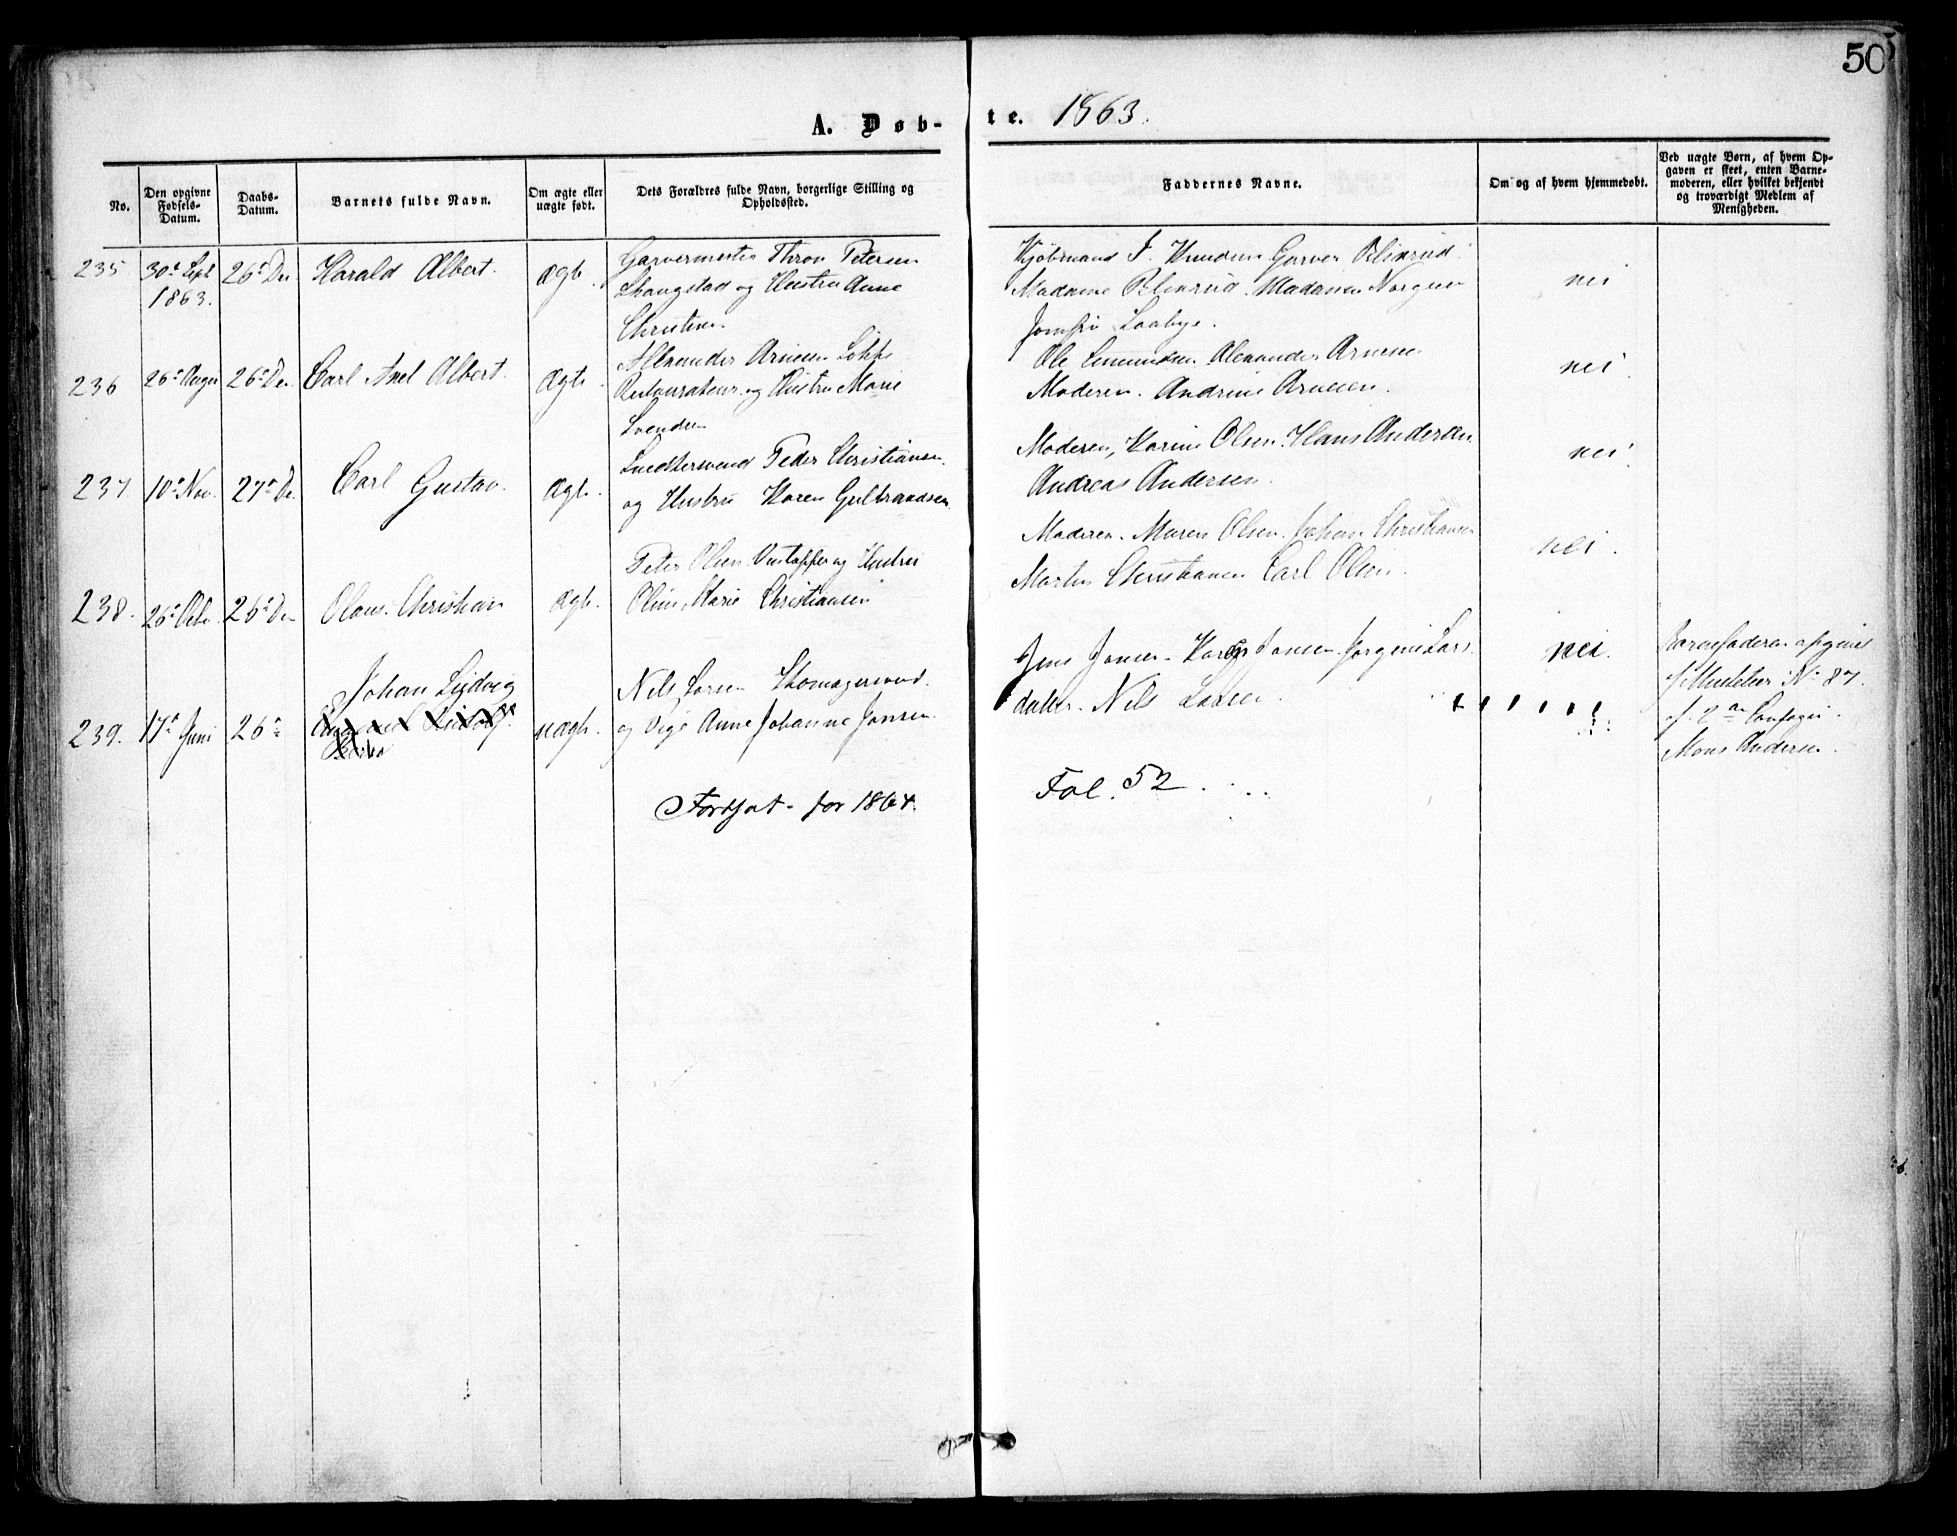 50
A. Døbte. 1863.
No.
Den opgivne Fødsels-Datum.
Daabs-Datum.
Barnets fulde Navn.
Om ægte eller uægte født.
Dets Forældres fulde Navn, borgerlige Stilling og Opholdssted.
Faddernes Navne.
Om og af hvem hjemmedøbt.
Ved uægte Børn, af hvem Opgaven er skeet, enten Barnemoderen, eller hvilket bekjendt og troværdigt Medlem af Menigheden.
235 30te Sept 1863. 26 De Harald Albert. ægte.
Garvermester Thron Petersen
og Hustru Anne
Christense
Kjøbmand J. Knudsen Garver Blixrud.
Madame Blixrud. Madame
Jomfru Laabye.
nei
236 26 Augu 26 De. Carl Axel Albert. ægte.
Alexander Arnesen
Restaurateur og Hustru Marie
Svendsen
Ole Alexander Arnesen
Moderen. Andrine Arnesen.
nei.
237. 10 Nov. 27 De. Carl Gustav. ægte.
Smedesvend Peder Christiansen.
og Hustru Karen Gulbrandsen
Moderen, Karine Olsen. Hans Andersen
Andreas Andersen.
nei.
238. 26 Octo 26 De Olaus Christian ægte.
Peter Olsen Vintapper og Hustru
Oline Marie Christiansen
Moderen. Maren Olsen. Johan Christiansen
Martin Christiansen Carl Olsen.
nei.
239. 17 Juni 26 Johan Ludvig uægte.
Nils Larsen Skomagersvend.
og Pige Anne Johanne Jonsen.
Jens Jonsen. Karen Jonsen. Jørgine Lars
datter. Nils Larsen
nei.
Barnefaderen opgives
Musketeer No 87.
af 2 Compagni.
Mons Andersen.
Fortsat. for 1864.
Fol. 52